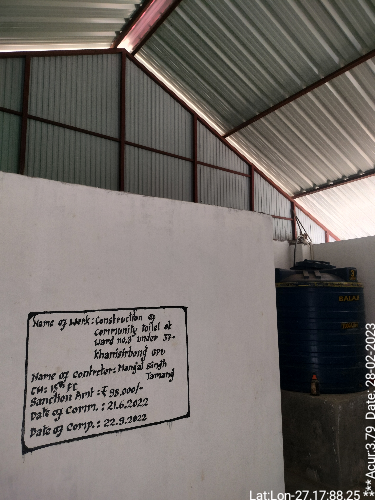 Name of Work: Construction of
Community toilet at
Ward no.3 under 37-
Kharisirbong GPU
Name of Contrctor: Mangal Singh
Tamang
CH: 15th FC
Sanction Amt: ₹ 98,000/-
Date of Comm.: 21.6.2022
Date of Comp.: 22.9.2022
Lat:Lon-27.17:88.25
***Acur:3.79 Date: 28-02-2023